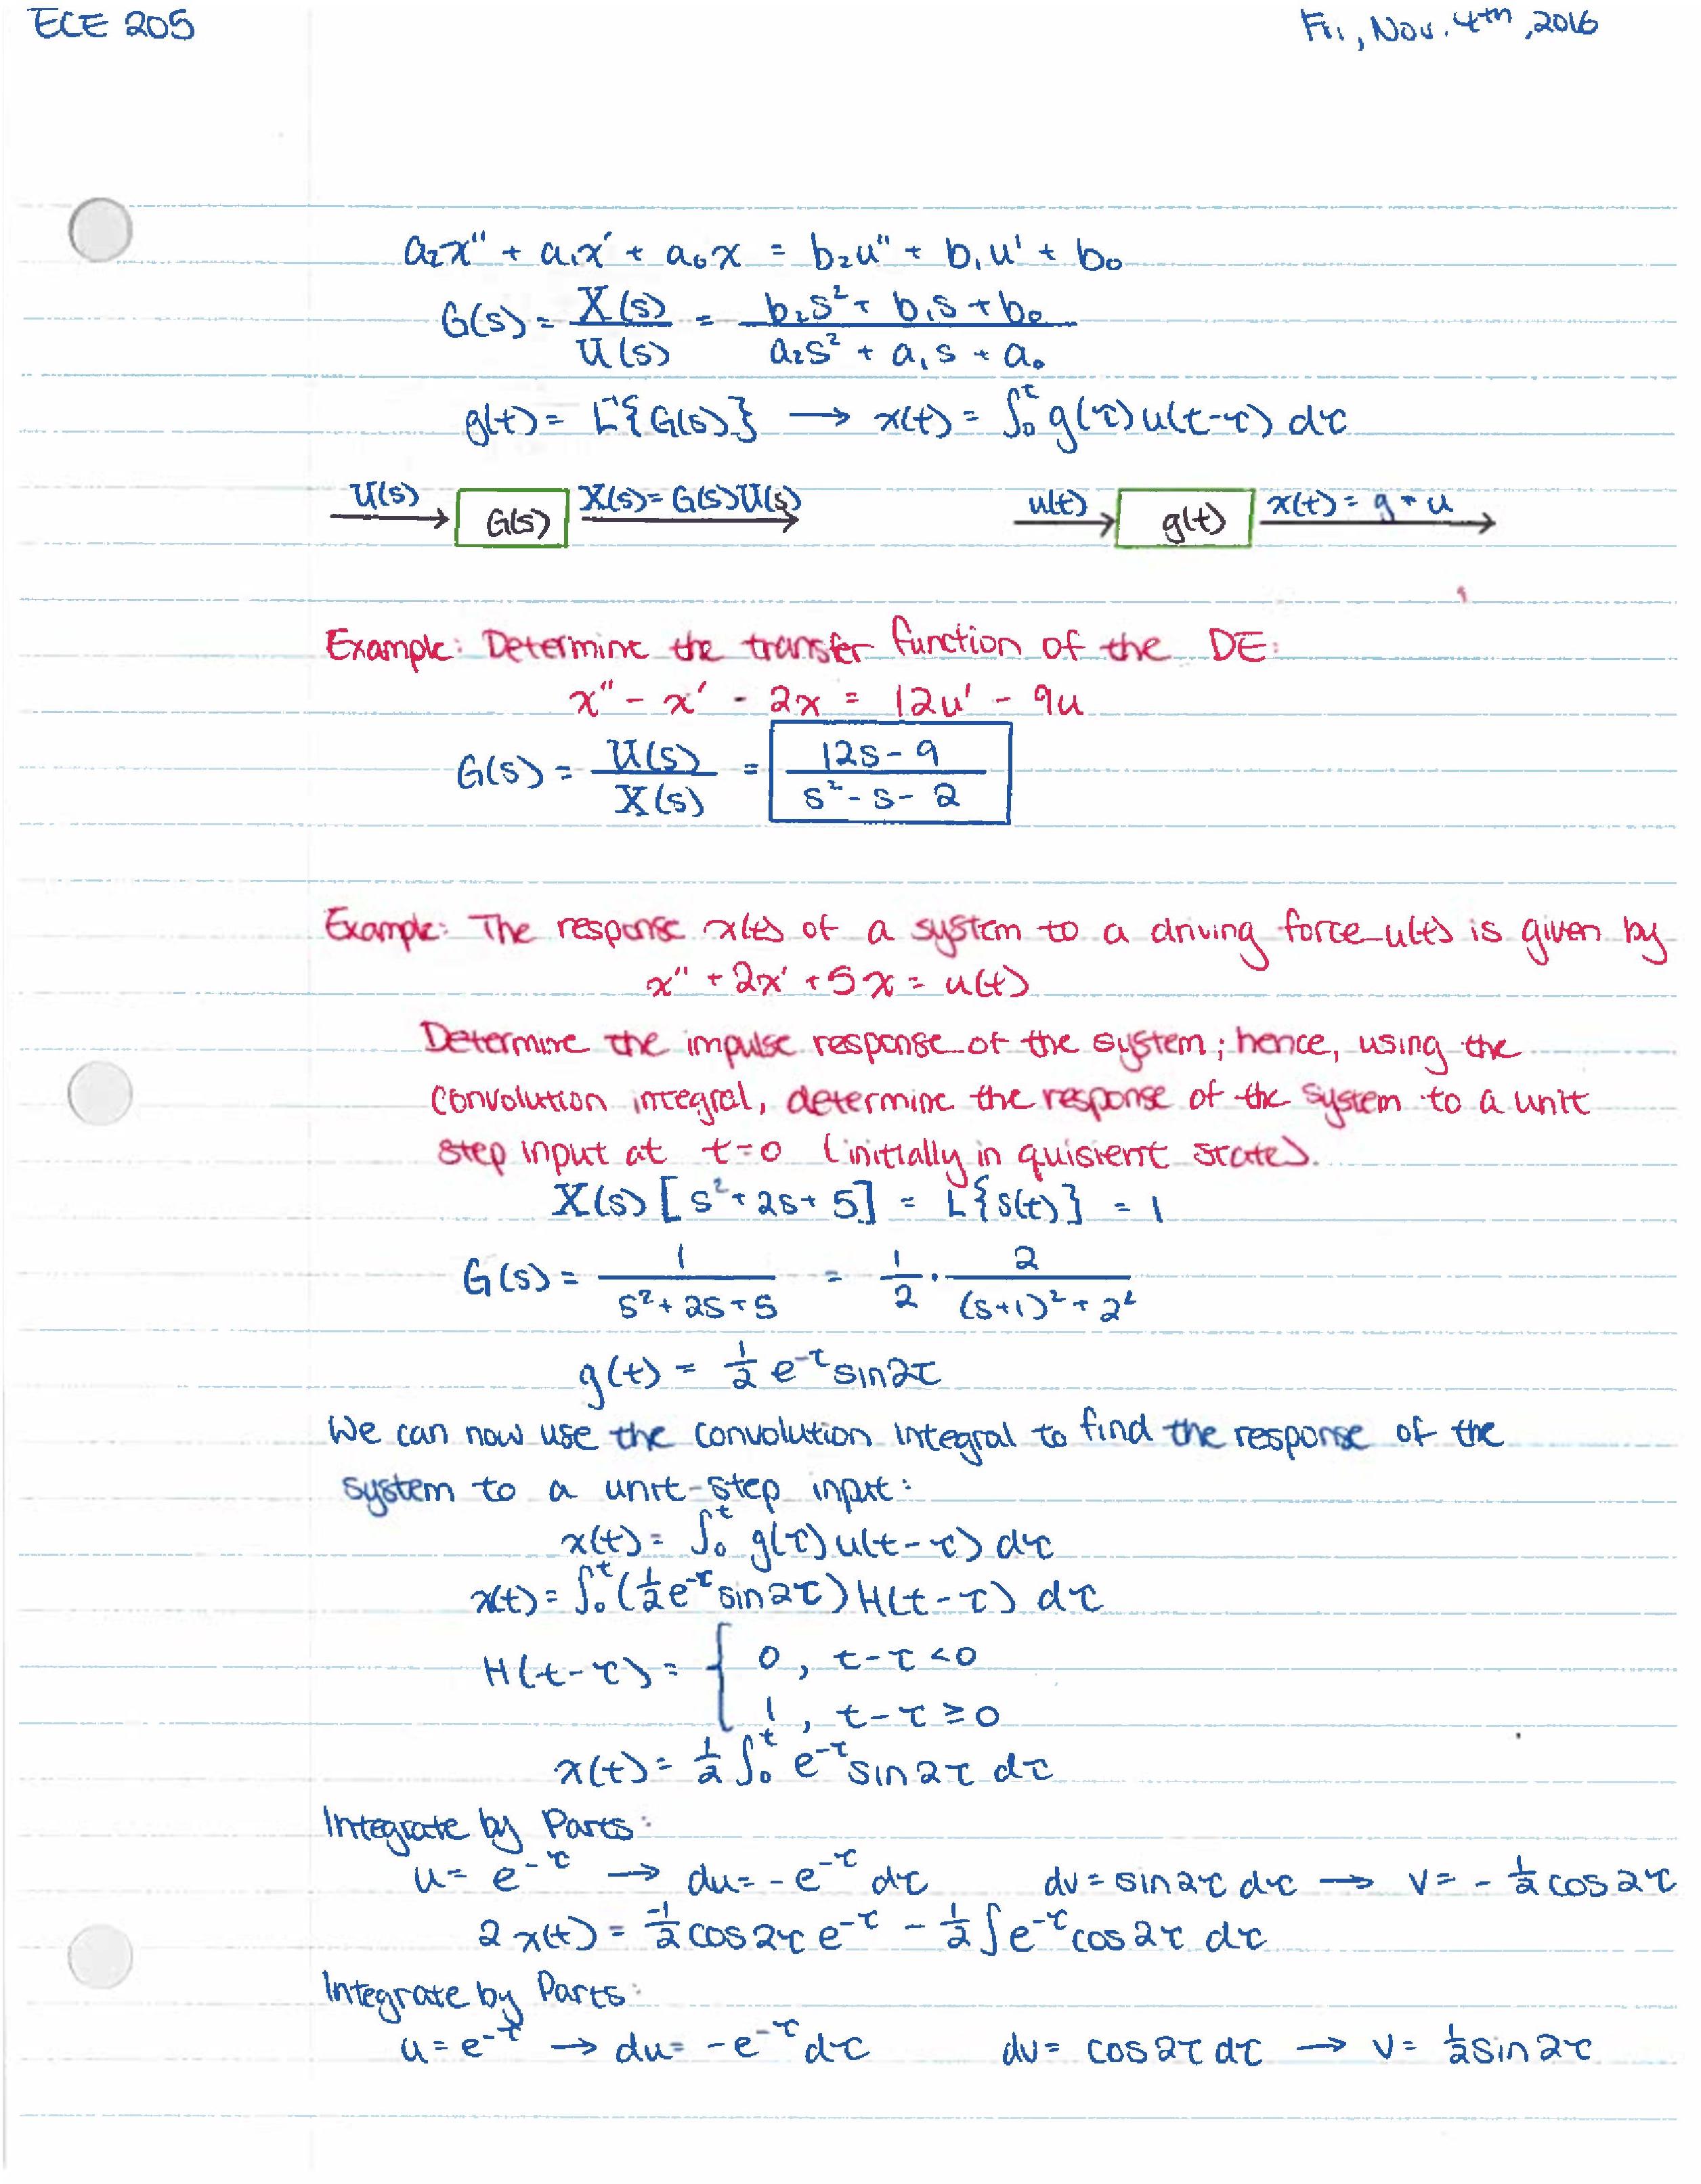 ECE 205
Fri, Nov. 4th, 2016
a₂x'' + a₁x' + a₀x = b₂u'' + b₁u' + b₀
G(s) = X(s)/U(s) = (b₂s² + b₁s + b₀)/(a₂s² + a₁s + a₀)
g(t) = L⁻¹{G(s)} → x(t) = ∫₀ᵗ g(τ)u(t-τ) dτ
U(s) → G(s) X(s) = G(s)U(s) →
u(t) → g(t) x(t) = g * u →
Example: Determine the transfer function of the DE:
x'' - x' - 2x = 12u' - 9u
G(s) = U(s)/X(s) = (12s - 9)/(s² - s - 2)
Example: The response x(t) of a system to a driving force u(t) is given by
x'' + 2x' + 5x = u(t)
Determine the impulse response of the system; hence, using the
convolution integral, determine the response of the system to a unit
step input at t=0 (initially in quisient state).
X(s)[s² + 2s + 5] = L{δ(t)} = 1
G(s) = 1/(s² + 2s + 5) = 1/2 · 2/((s+1)² + 2²)
g(t) = ½ e^-τ sin2τ
We can now use the convolution integral to find the response of the
system to a unit-step input:
x(t) = ∫₀ᵗ g(τ)u(t-τ) dτ
x(t) = ∫₀ᵗ (½e^-τ sin2τ) H(t-τ) dτ
H(t-τ) = { 0, t-τ < 0
1, t-τ ≥ 0
x(t) = ½ ∫₀ᵗ e^-τ sin2τ dτ
Integrate by Parts:
u = e^-τ → du = -e^-τ dτ dv = sin2τ dτ → v = -½ cos2τ
2x(t) = -½ cos2τ e^-τ - ½ ∫e^-τ cos2τ dτ
Integrate by Parts:
u = e^-τ → du = -e^-τ dτ dv = cos2τ dτ → v = ½ sin2τ